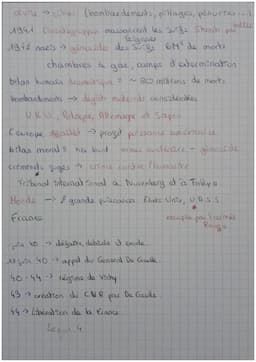 civils → crimes (bombardements, pillages, pénuries...)
1941 massacrent les Juifs Shoah par
1942 nazis → génocide des Juifs 6M° de morts
chambres à gaz, camps d'extermination
bilan humain = ~ 50 millions de morts
bombardements → dégâts matériels considérables
U.R.S.S, Pologne, Allemagne et Japon
L'europe → projet puissance
bilan moral = - génocide
criminels jugés → crimes contre l'humanité
Tribunal international à Nuremberg et à Tokyo
Monde → 2 grandes puissances États-Unis, U.R.S.S
occupée par l'armée
Rouge
France
juin 40 → défaite, débâcle et exode
18 juin 40 → appel du General De Gaulle
40-44 → régime de Vichy
43 → création du C.N.R par De Gaulle
44 → Libération de la France
Leçon 4